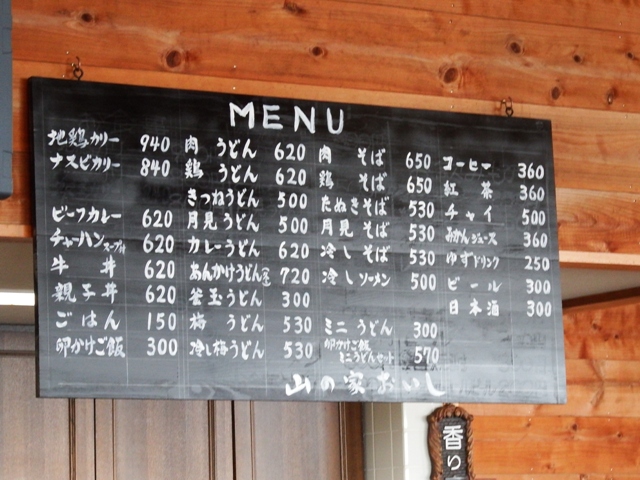 MENU
地鶏カリー 940
ナスビカリー 840
ビーフカレー 620
チャーハン スープ付 620
牛丼 620
親子丼 620
ごはん 150
卵かけご飯 300
肉うどん 620
鶏うどん 620
きつねうどん 500
月見うどん 500
カレーうどん 620
あんかけうどん 720
釜玉うどん 300
梅うどん 530
冷し梅うどん 530
肉そば 650
鶏そば 650
たぬきそば 530
月見そば 530
冷しそば 530
冷しソーメン 500
ミニうどん 300
卵かけご飯
ミニうどんセット 570
コーヒー 360
紅茶 360
チャイ 500
みかんジュース 360
ゆずドリンク 250
ビール 300
日本酒 300
山の家おいし
香り